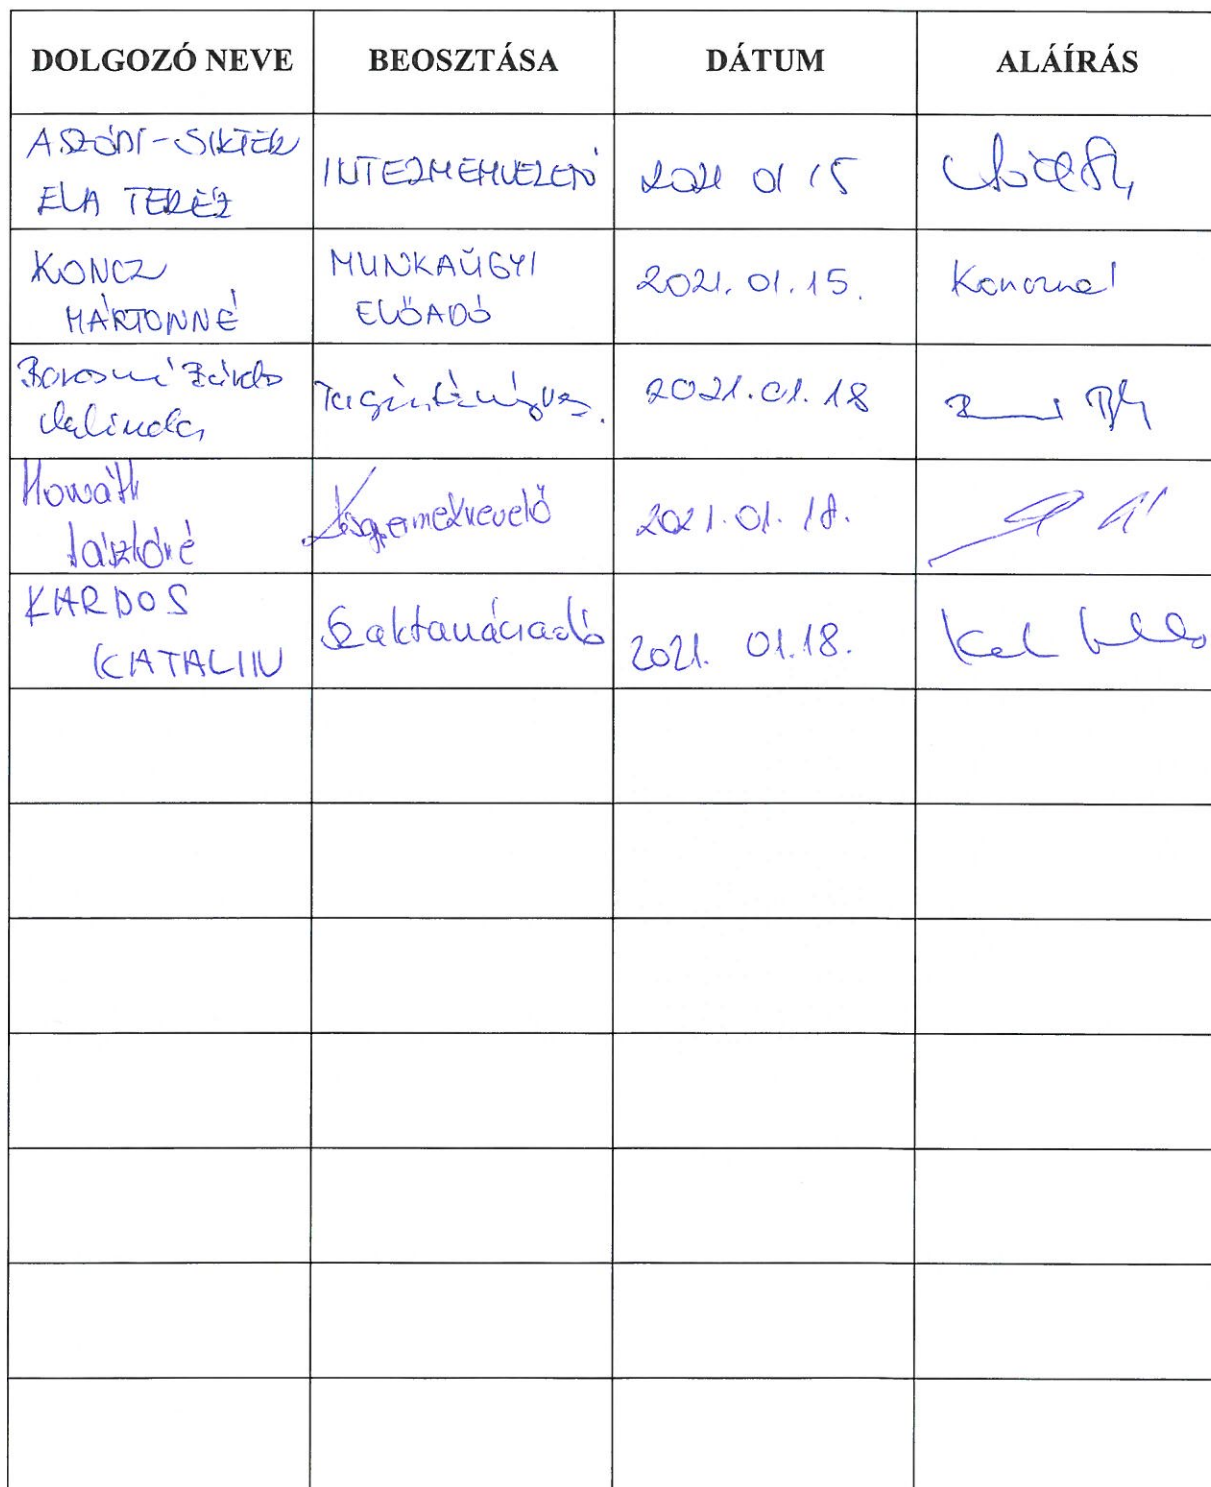 DOLGOZÓ NEVE BEOSZTÁSA DÁTUM ALÁÍRÁS
ASZÓDI-SIKTÉR
ELA TERÉZ
INTEZMEMVEZETŐ
2021 01 15
KONCZ
MÁRTONNÉ
MUNKAÜGYI
ELŐADÓ
2021.01.15.
Konczné
Borosné
2021.01.18
Horváth
Lászlóné
Kisgyermeknevelő
2021.01.18.
KARDOS
KATALIN
Szaktanácsadó
2021. 01.18.